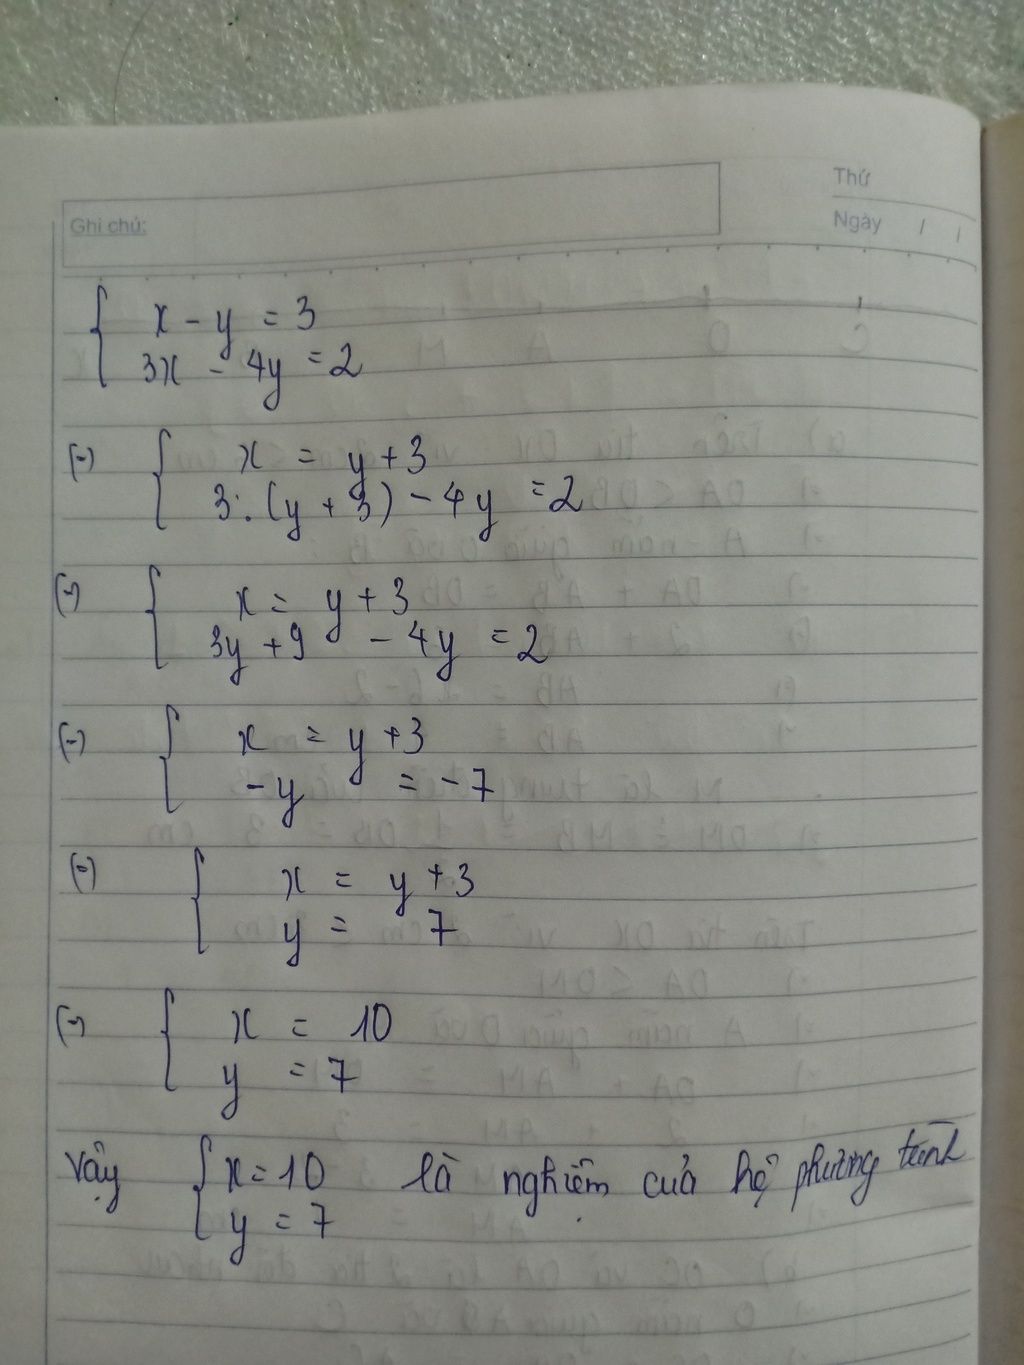 Thứ
Ghi chú:
Ngày / /
{ x - y = 3
3x - 4y = 2
(=) { x = y + 3
3.(y + 3) - 4y = 2
(=) { x = y + 3
3y + 9 - 4y = 2
(=) { x = y + 3
-y = -7
(=) { x = y + 3
y = 7
(=) { x = 10
y = 7
Vậy { x = 10 là nghiệm của hệ phương trình
y = 7